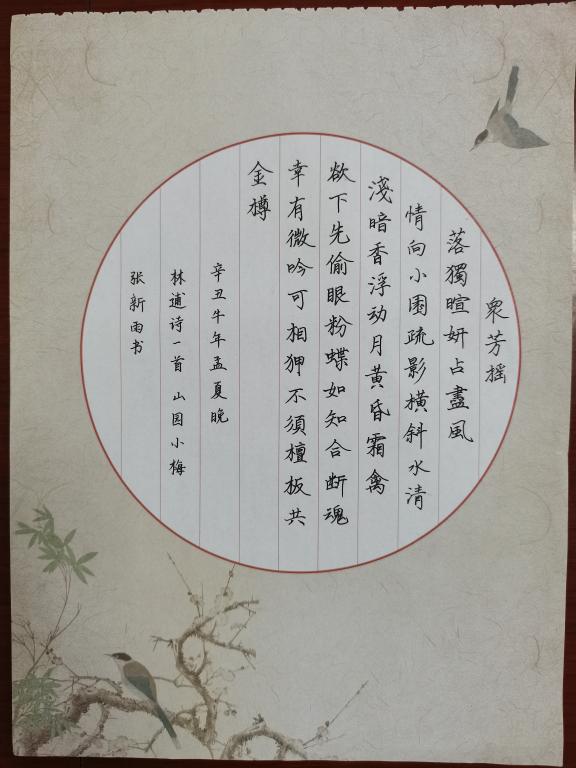 眾芳摇
落獨暄妍占盡風
情向小園疏影橫斜水清
淺暗香浮动月黄昏霜禽
欲下先偷眼粉蝶如知合断魂
幸有微吟可相狎不須檀板共
金樽
辛丑牛年孟夏晚
林逋诗一首 山园小梅
张新雨书